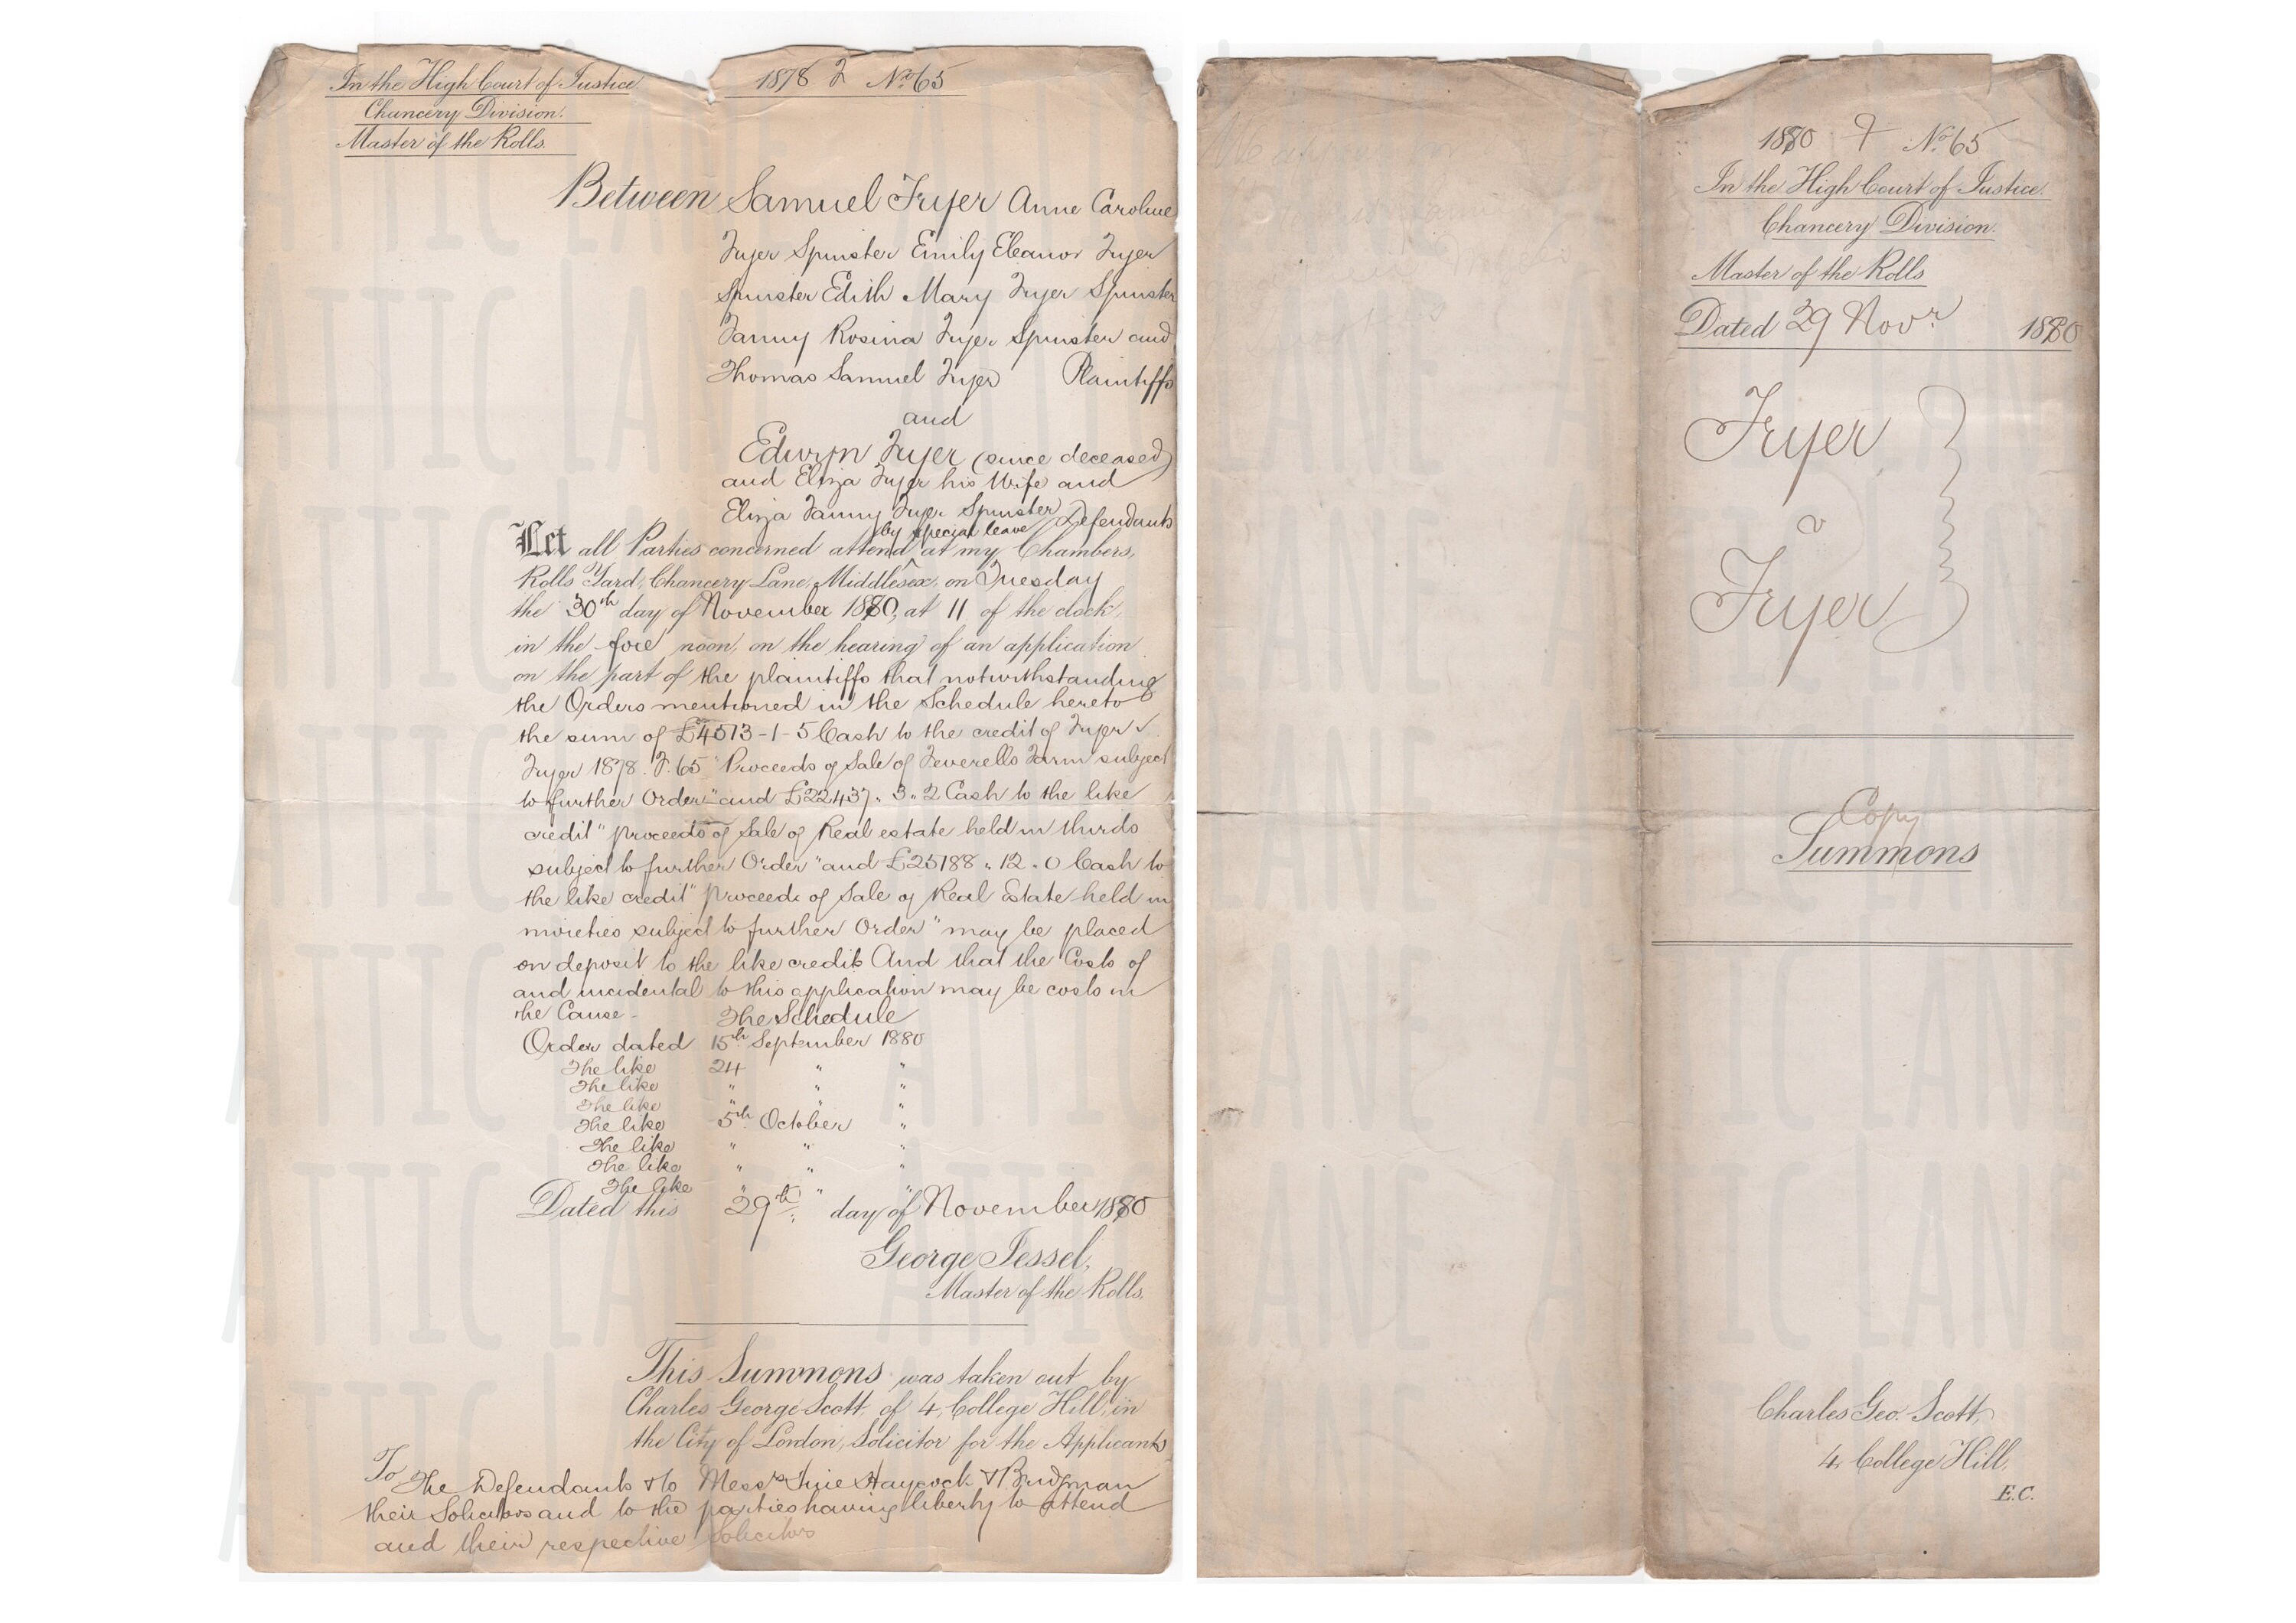 In the High Court of Justice
Chancery Division.
Master of the Rolls.
1878 F No. 65
Between Samuel Fryer Anne Caroline
Fryer Spinster Emily Eleanor Fryer
Spinster Edith Mary Fryer Spinster
Fanny Rosina Fryer Spinster and
Thomas Samuel Fryer Plaintiffs
and
Edwyn Fryer (since deceased)
and Eliza Fryer his Wife and
Eliza Fanny Fryer Spinster Defendants
by special leave
Let all Parties concerned attend at my Chambers,
Rolls Yard, Chancery Lane, Middlesex, on Tuesday
the 30th day of November 1880, at 11 of the clock,
in the fore noon, on the hearing of an application
on the part of the plaintiffs that notwithstanding
the Orders mentioned in the Schedule hereto
the sum of £4513-1-5 Cash to the credit of Fryer v
Fryer 1878. F. 65 "Proceeds of Sale of Feverells Farm subject
to further Order" and £22437 " 3 " 2 Cash to the like
credit "proceeds of Sale of Real estate held in thirds
subject to further Order" and £25188 " 12 " 0 Cash to
the like credit "proceeds of Sale of Real Estate held in
moieties subject to further Order" may be placed
on deposit to the like credit And that the Costs of
and incidental to this application may be costs in
the Cause -
The Schedule
Order dated 15th September 1880
The like 24 " "
The like " " "
The like " " "
The like 5th October "
The like " " "
The like " " "
The like " " "
Dated this 29th day of November 1880
George Jessel,
Master of the Rolls.
This Summons was taken out by
Charles George Scott, of 4, College Hill, in
the City of London, Solicitor for the Applicants
To The Defendants & to Messrs Haycock & Bridgman
their Solicitors and to the parties having liberty to attend
and their respective Solicitors
1880 F No. 65
In the High Court of Justice.
Chancery Division.
Master of the Rolls
Dated 29 Novr 1880
Fryer
v
Fryer
Copy
Summons
Charles Geo. Scott,
4, College Hill,
E.C.
ATTIC LANE